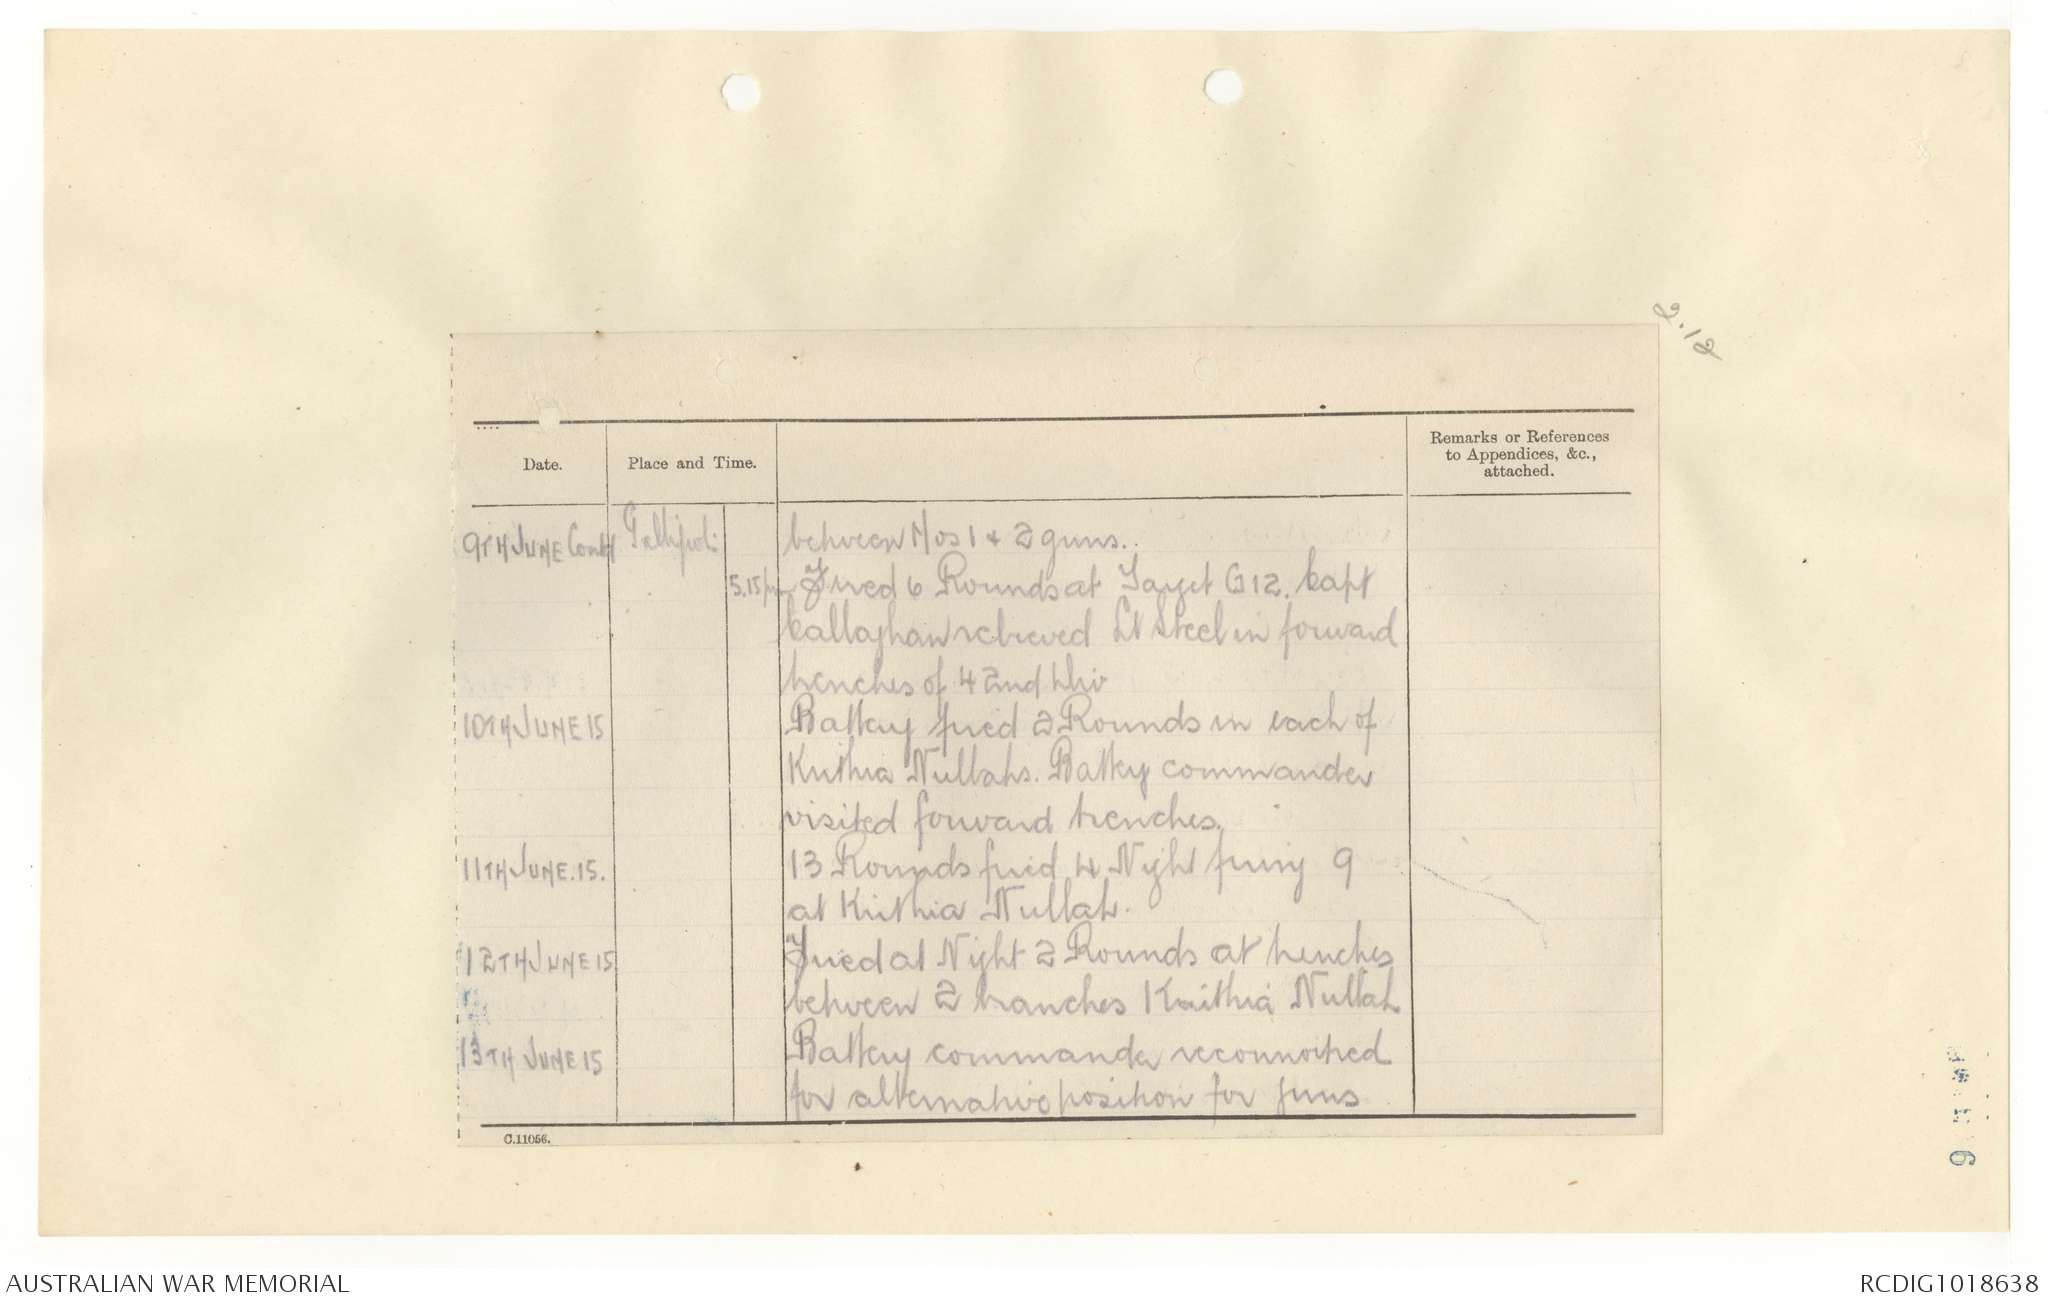 2.12
Date.
Place and Time.
Remarks or References
to Appendices, &c.,
attached.
9TH JUNE Contd Gallipoli between Nos 1 & 2 guns.
5.15pm Fired 6 Rounds at Target G12. Capt
Callaghan relieved Lt Steel in forward
trenches of 42nd Div
10TH JUNE 15 Battery fired 2 Rounds in each of
Krithia Nullahs. Battery commander
visited forward trenches.
11TH JUNE.15. 13 Rounds fired 4 Night firing 9
at Krithia Nullah.
12TH JUNE 15 Fired at Night 2 Rounds at trenches
between 2 branches Kraithia Nullah
13TH JUNE 15 Battery commander reconnoitred
for alternative position for guns
C.11056.
AUSTRALIAN WAR MEMORIAL
RCDIG1018638